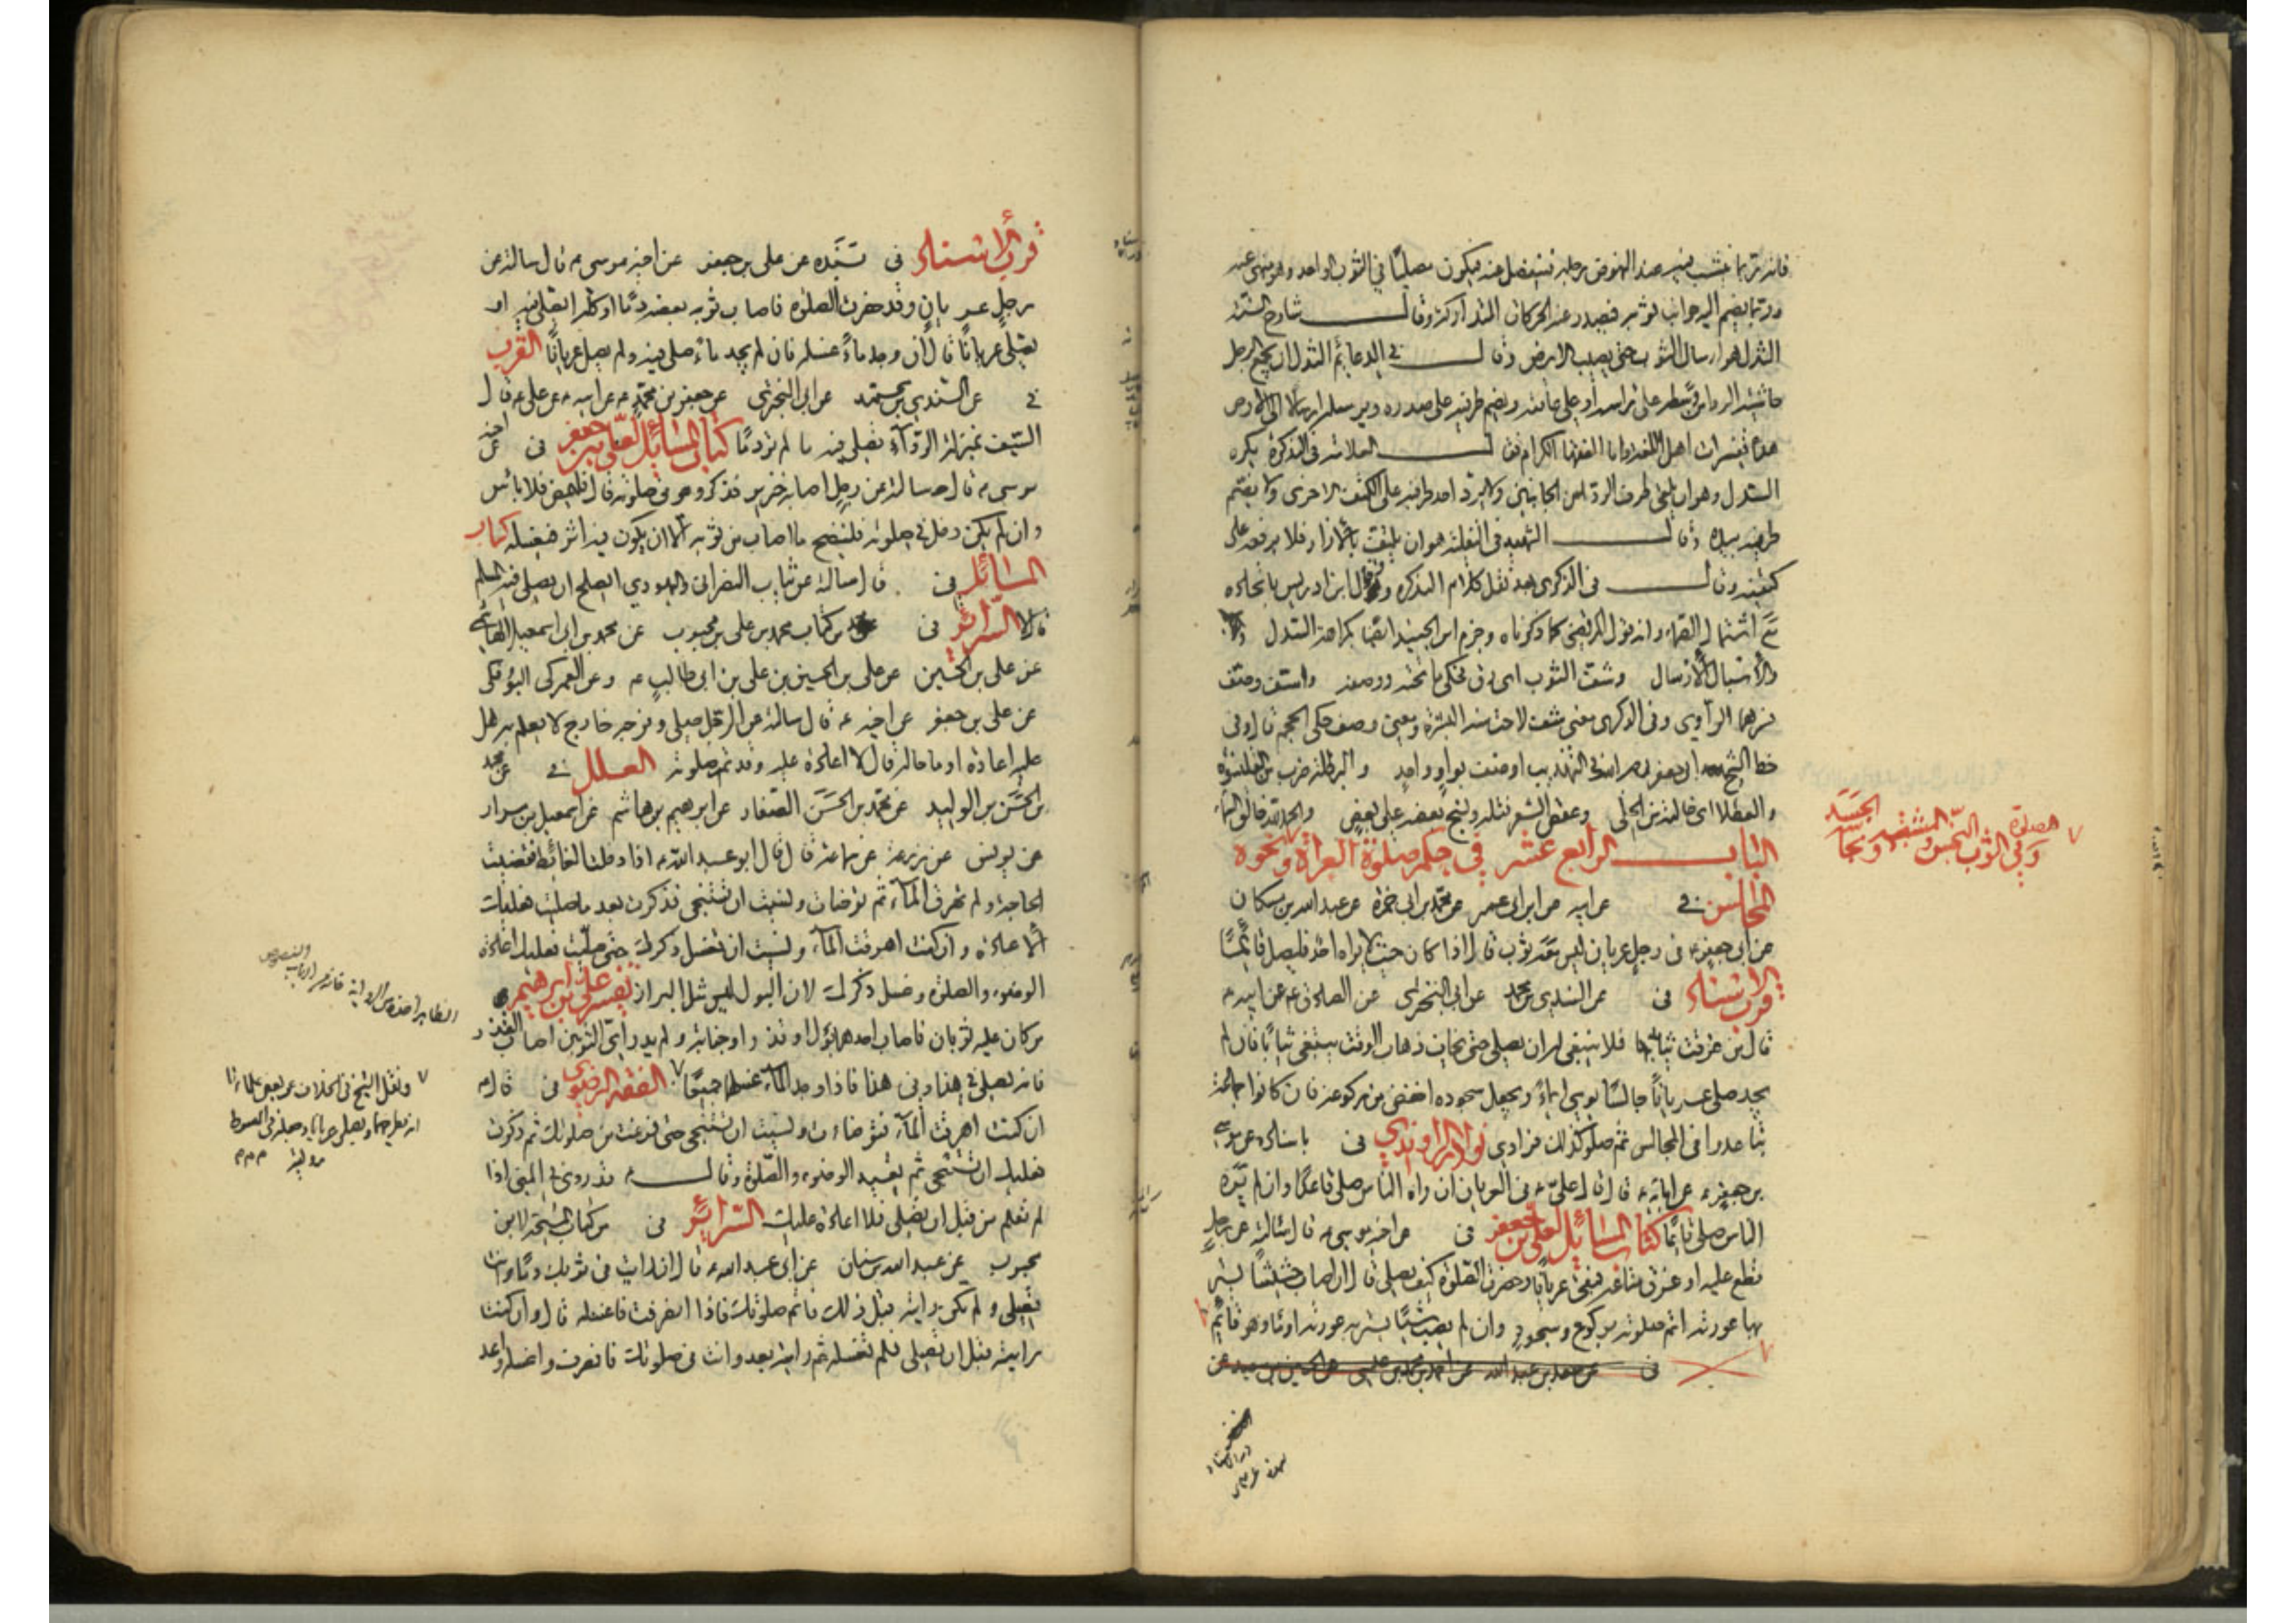 فانه ربما خشب فيه عند النهوض برجله فينفصل عنه فيكون مصليًا في الثوب الواحد وهو منهى عنه
وربما يضم اليه جوانب ثوبه فيصدر عنه الحركات المتداركة وقال شارح السنة
السدل هو ارسال الثوب حتى يصيب الارض وقال في الدعايم السدل ان يجمع الرجل
حاشية الرداء من وسطه على راسه او على عاتقه ويضم طرفيه على صدره ويرسله ارسالا الى الارض
هذه تفسيرات اهل اللغة واما الفقها الكرام فقال العلامة في التذكرة يكره
السدل وهو ان يلقى طرف الرداء من الجانبين ولا يرد احد طرفيه على الكتف الاخرى ولا يضم
طرفيه بيده وقال الشهيد في النفلية هو ان يلتف بالازار فلا يرفعه على
كتفيه وقال في الذكرى بعد نقل كلام التذكره وقال ابن ادريس باتحاده
مع اشتمال الصماء وانه قول المرتضى كما ذكرناه وجزم ابن الجنيد ايضا بكراهة السدل
والاسبال الارسال وشف الثوب اى رق فحكى ما تحته ووصف واستف وصف
فهما الراوى وفى الذكرى معنى شف لاحت منه البشرة ومعنى وصف حكى الحجم قال وفى
خط الشيخ ابى جعفر فى التهذيب او صف بواو واحد والبرطلة ضرب من القلنسوة
والعطلا اى خالية من الحلى وعقص الشعر فتله ونسج بعضه على بعض
الباب الرابع عشر في حكم صلوة العراة ونحوه
الصلوة وفي الثوب النجس والمشتبه ونجاسة الجسد
المجالس في عن ابيه عن ابن ابى عمير عن محمد بن ابى حمزة عن عبد الله بن مسكان
عن ابى جعفر ع فى رجل عريان ليس معه ثوب قال اذا كان حيث لا يراه احد فليصل قائمًا
قرب الاسناد فى عن السندى بن محمد عن ابى البخترى عن الصادق ع عن ابيه ع
قال من غرقت ثيابه فلا ينبغى له ان يصلى حتى يخاف ذهاب الوقت يبتغى ثيابًا فان لم
يجد صلى عريانًا جالسًا يومى ايماءً ويجعل سجوده اخفض من ركوعه فان كانوا جماعة
تباعدوا فى المجالس ثم صلوا كذلك فرادى نوادر الراوندي فى باسناده عن موسى
بن جعفر ع عن ابائه ع قال قال على ع فى العريان ان راه الناس صلى قاعدًا وان لم يره
الناس صلى قائمًا كتاب المسائل لعلى بن جعفر فى عن اخيه موسى ع قال سالته عن رجل
قطع عليه او غرق متاعه فبقى عريانًا وحضرت الصلوة كيف يصلى قال ان اصاب حشيشًا يستر
بها عورته اتم صلوته بركوع وسجود وان لم يصب شيئًا يستر به عورته اومأ وهو قائم
فى عن سعد بن عبد الله عن احمد بن محمد بن عيسى عن الحسين بن سعيد عن
قرب الاسناد فى بسنده عن على بن جعفر عن اخيه موسى ع قال سالته عن
رجل عريان وقد حضرت الصلوة فاصاب ثوبه بعضه دمًا او كله ايصلى فيه او
يصلى عريانًا قال ان وجد ماءً غسله فان لم يجد ماءً صلى فيه ولم يصل عريانًا القرب
في عن السندي بن محمد عن ابى البخترى عن جعفر بن محمد ع عن ابيه ع عن على ع قال
السيف بمنزلة الردآء تصلى فيه ما لم تر دمًا كتاب المسائل لعلى بن جعفر فى عن اخيه
موسى ع قال سالته عن رجل اصابه خنزير فذكر وهو فى صلوته قال فليمض فلا بأس
وان لم يكن دخل في صلوته فلينضح ما اصاب من ثوبه الا ان يكون فيه اثر فيغسله كتاب
المسائل فى قال سالته عن ثياب النصرانى واليهودي ايصلح ان يصلى فيه المسلم
قال لا السرائر فى من كتاب محمد بن على بن محبوب عن محمد بن ابى اسمعيل الهاشمي
عن على بن الحسين عن على بن الحسين بن على بن ابى طالب ع وعن العمركى البوفكى
عن على بن جعفر عن اخيه ع قال سالته عن الرجل صلى وفرجه خارج لا يعلم به هل
عليه اعادة او ما حاله قال لا اعادة عليه وقد تم صلوته العلل في عن محمد
بن الحسن بن الوليد عن محمد بن الحسن الصفار عن ابرهيم بن هاشم عن اسمعيل بن مرار
عن يونس عن زرعة عن سماعة قال قال ابو عبد الله ع اذا دخلت الغائط فقضيت
الحاجة ولم تهرق المآء ثم توضات ونسيت ان تستنجى فذكرت بعد ما صليت فعليك
الاعادة وان كنت اهرقت المآء ونسيت ان تغسل ذكرك حتى صليت فعليك اعادة
الوضوء والصلوة وغسل ذكرك لان البول ليس مثل البراز تفسير على بن ابرهيم
من كان عليه ثوبان فاصاب احدهما بول او قذر او جنابة ولم يدر اى الثوبين اصاب القذر
فانه يصلى في هذا وفى هذا فاذا وجد المآء غسلهما جميعًا الفقه الرضوى فى قال ع
ان كنت اهرقت المآء فتوضات ونسيت ان تستنجى حتى فرغت من صلوتك ثم ذكرت
فعليك ان تستنجى ثم تعيد الوضوء والصلوة وقال ع قد روى في المنى اذا
لم تعلم من قبل ان تصلى فلا اعادة عليك السرائر فى من كتاب المشيخة لابن
محبوب عن عبد الله بن سنان عن ابى عبد الله ع قال ان رايت فى ثوبك دمًا وانت
تصلى ولم تكن رايته قبل ذلك فاتم صلوتك فاذا انصرفت فاغسله قال وان كنت
رايته قبل ان تصلى فلم تغسله ثم رايته بعد وانت فى صلوتك فانصرف واغسله واعد
ونقل الشيخ فى الخلاف عن بعض علمائنا
انه يطرحهما ويصلى عريانا وجعله فى المبسوط
رواية